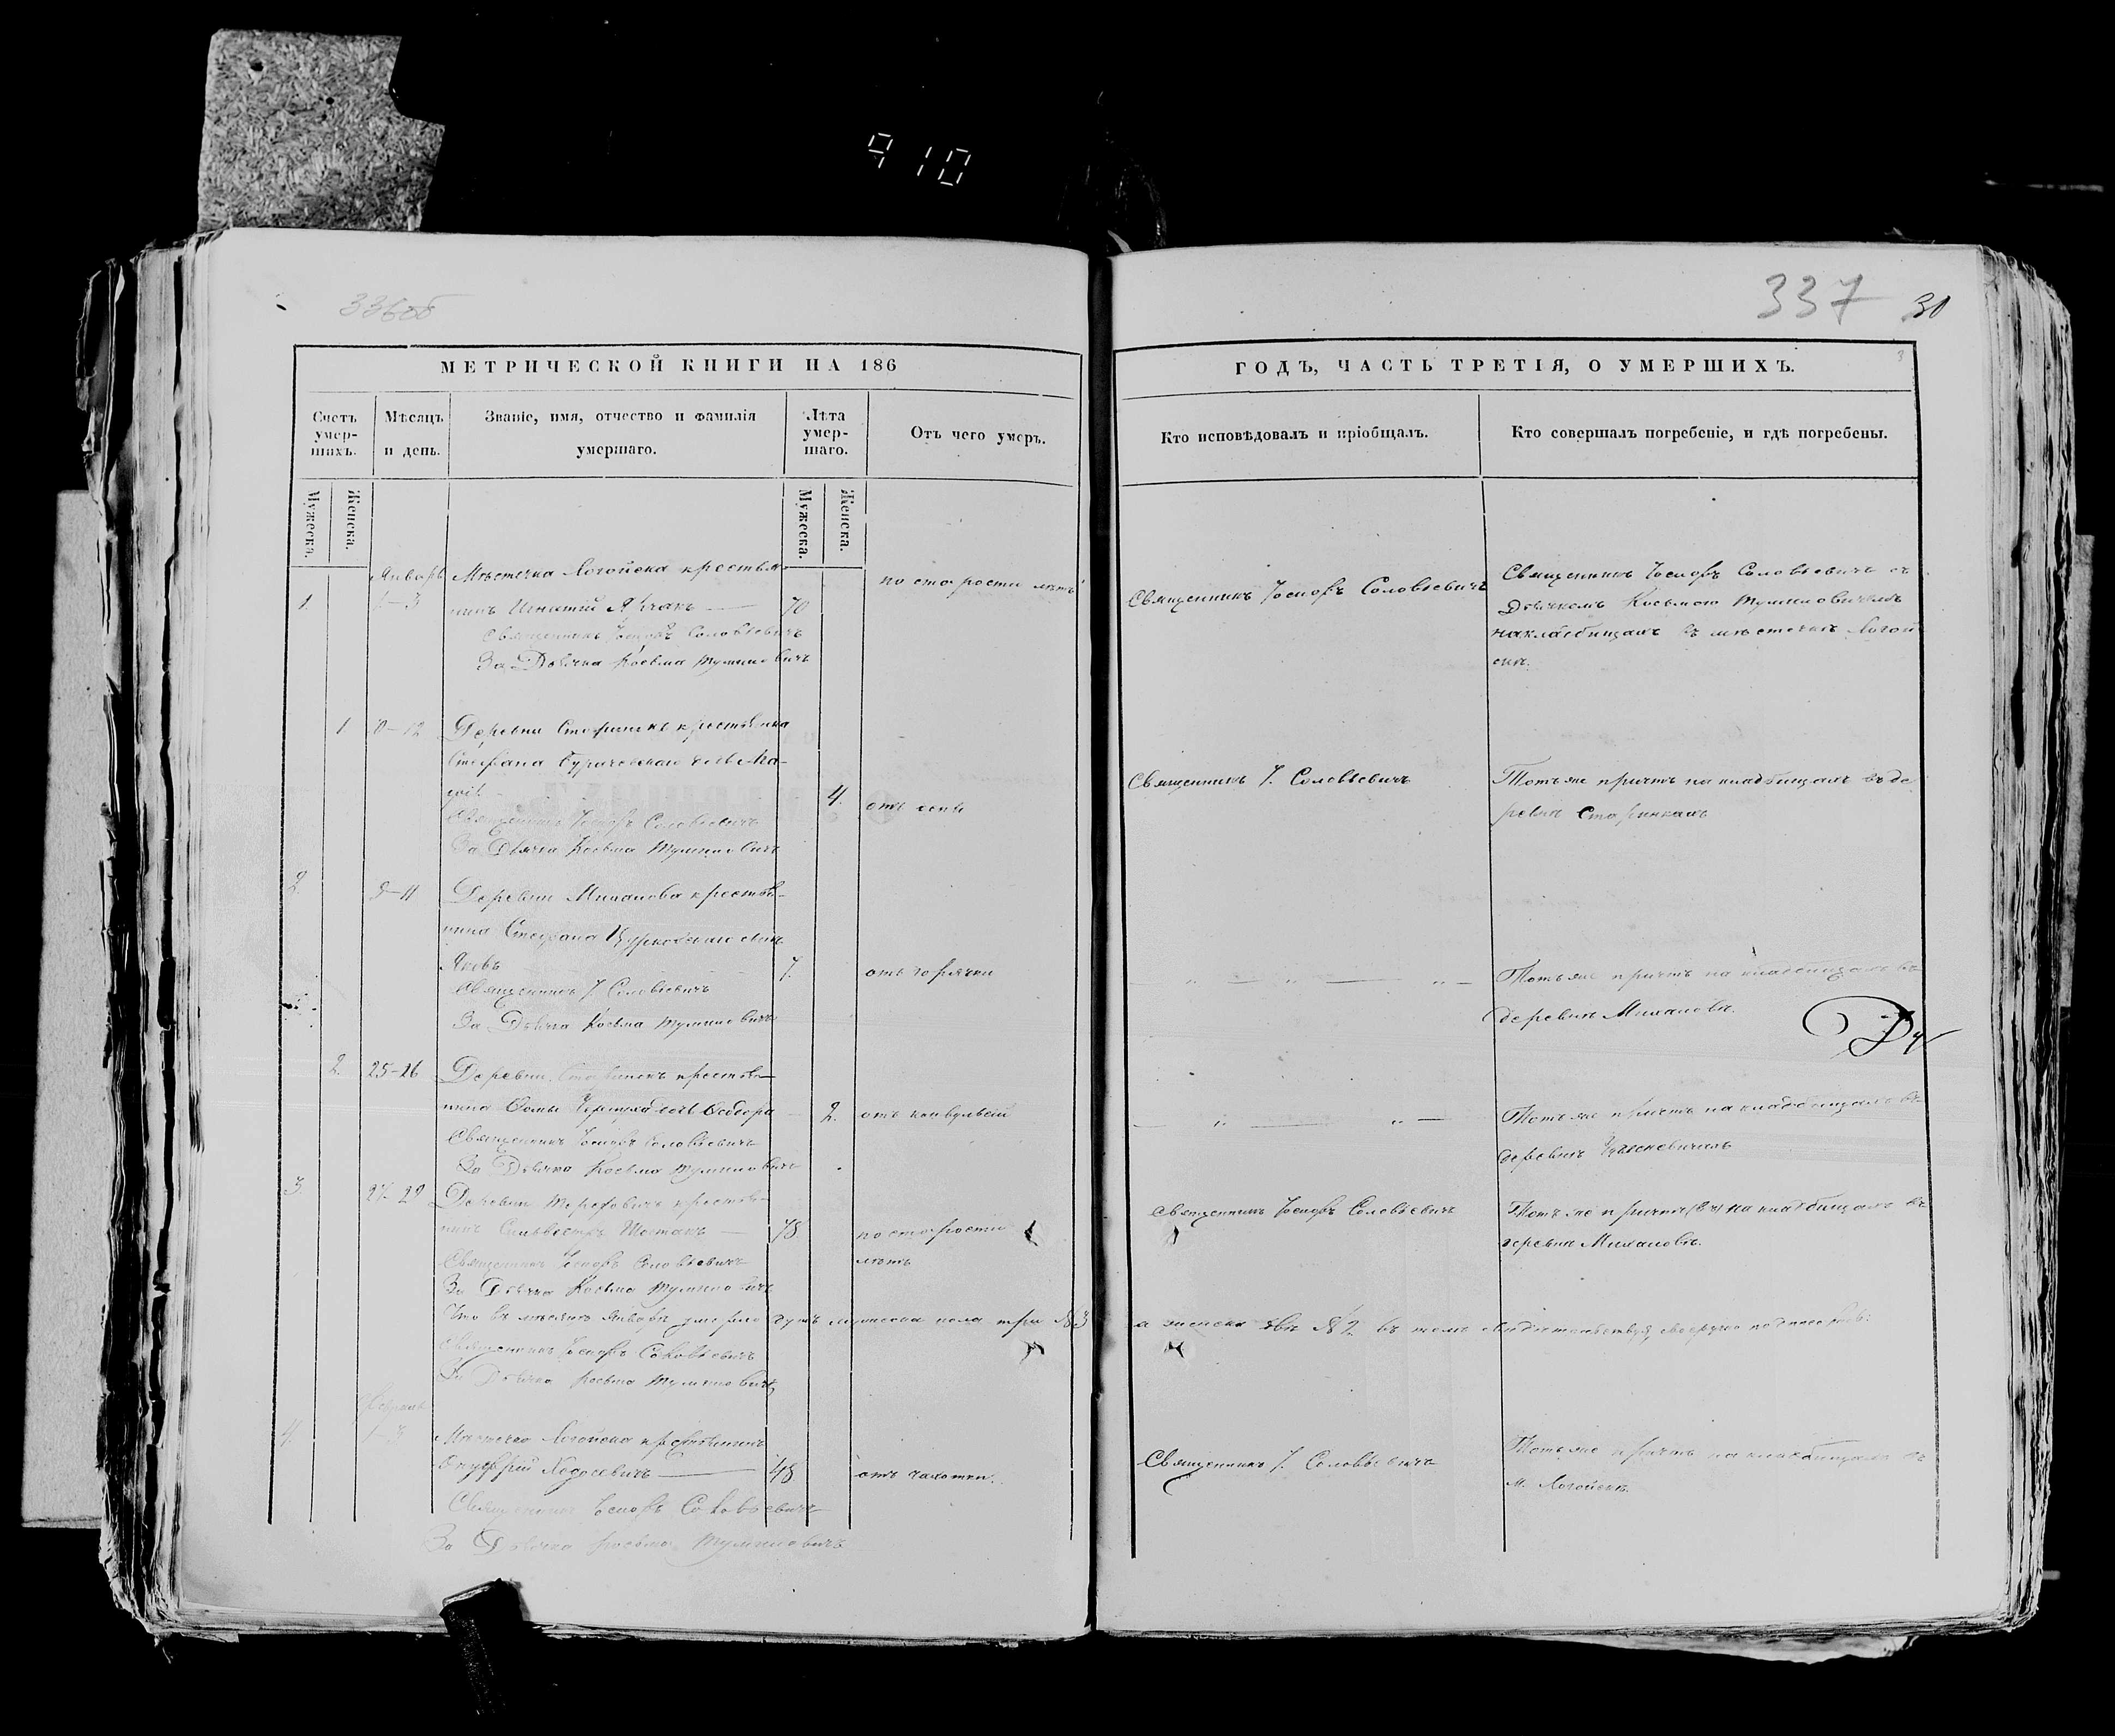 910
336об
337 30
МЕТРИЧЕСКОЙ КНИГИ НА 186
ГОДЪ, ЧАСТЬ ТРЕТІЯ, О УМЕРШИХЪ.
3
Счетъ умер-шихъ.
Мѣсяцъ и день.
Званіе, имя, отчество и фамилія умершаго.
Лѣта умер-шаго.
Отъ чего умеръ.
Кто исповѣдовалъ и пріобщалъ.
Кто совершалъ погребеніе, и гдѣ погребены.
Мужеска.
Женска.
Мужеска.
Женска.
Январь
1. 1-3
Мѣстечка Логойска крестья-
нинъ Игнатій 70
Священникъ Іосифъ Соловьевичъ
За Дьячка Косьма Тумиловичъ
по старости лѣтъ
Священникъ Іосифъ Соловьевичъ
Священникъ Іосифъ Соловьевичъ съ
Дьячкомъ Косьмою Тумиловичемъ
на кладбищахъ въ мѣстечкѣ Логой
скѣ.
1 10-12
Деревни Старинокъ крестьянина
Стефана дочь Ма-
4.
отъ
Священникъ Іосифъ Соловьевичъ
За Дьячка Косьма Тумиловичъ
Священникъ І. Соловьевичъ
Тотъ же причтъ на кладбищахъ въ де
ревнѣ Старинкахъ
2. 9-11
Деревни Михалова крестья-
нина Стефана сынъ
Яковъ 7.
отъ горячки
Священникъ І. Соловьевичъ
За Дьячка Косьма Тумиловичъ
Тотъ же причтъ на кладбищахъ въ
деревнѣ Михаловѣ.
2. 25-26
Деревни Старинокъ крестья-
нина Фомы дочь Ѳеодора
2.
отъ конвульсій
Священникъ Іосифъ Соловьевичъ
За Дьячка Косьма Тумиловичъ
Тотъ же причтъ на кладбищахъ въ
деревнѣ
3 27-29
Деревни крестья-
нинъ Сильвестръ Шостакъ 78
по старости
лѣтъ
Священникъ Іосифъ Соловьевичъ
За Дьячка Косьма Тумиловичъ
Священникъ Іосифъ Соловьевичъ
Тотъ же причтъ на кладбищахъ въ
деревнѣ Михаловѣ.
Что въ мѣсяцѣ Январѣ умерло душъ мужеска пола три №3 а женска двѣ №2. въ томъ свидѣтельствуя, своеручно подписуюсь:
Священникъ Іосифъ Соловьевичъ
За Дьячка Косьма Тумиловичъ
Февраль
4. 1-3
Мѣстечка Логойска крестьянинъ
Онуфрій Ходосевичъ 48
отъ чахотки.
Священникъ Іосифъ Соловьевичъ
За Дьячка Косьма Тумиловичъ
Священникъ І. Соловьевичъ
Тотъ же причтъ на кладбищахъ въ
м. Логойскѣ.